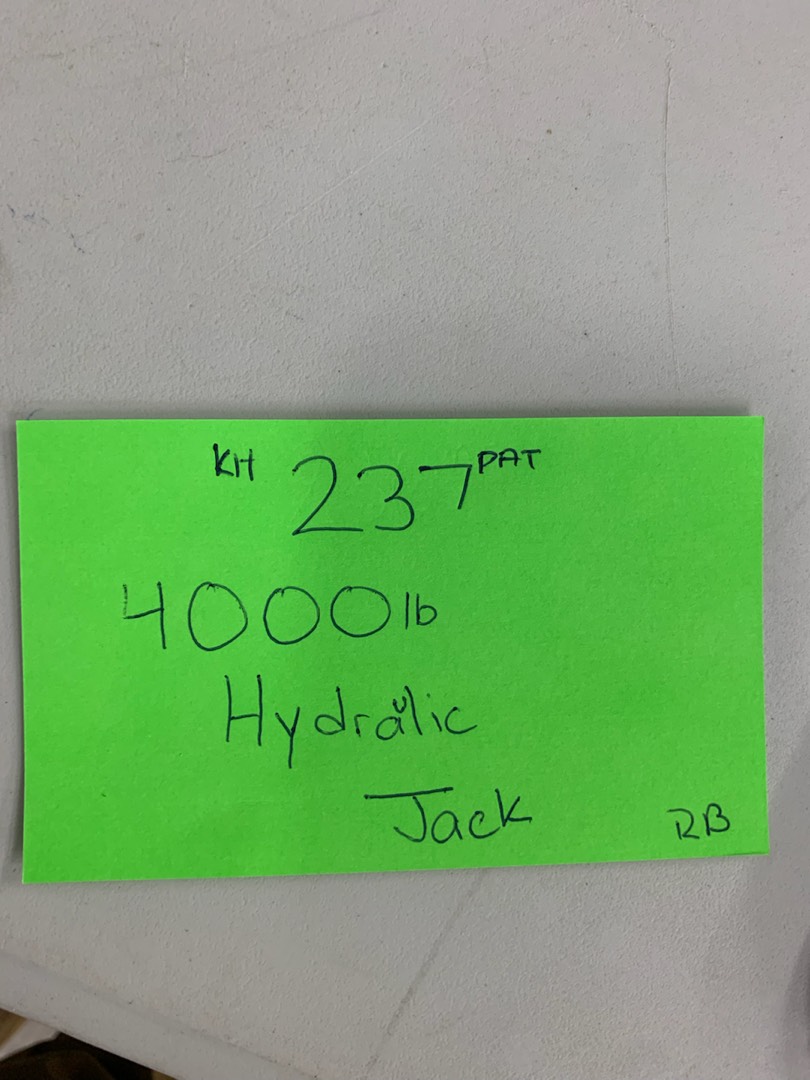 KH 237 PAT
4000 lb
Hydraulic
Jack
RB